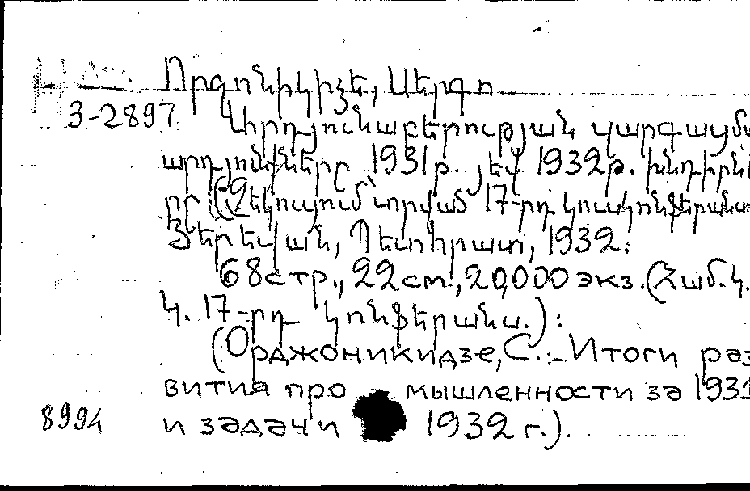 Որջոնիկիձե, Սերգո
3-2897 Արդյունաբերության զարգացմա
արդյունքները 1931թ. յեվ 1932թ. խնդիրնե
րը (Զեկուցում՝ տրված 17-րդ կուսկոնֆերանս
Յերեվան, Պետհրատ, 1932:
68 стр., 22 см., 20,000 экз. (Համ.Կ.
Կ. 17-րդ կոնֆերանս.):
(Орджоникидзе, С. :- Итоги раз
вития про мышленности за 1931
8994 и задачи 1932 г.).